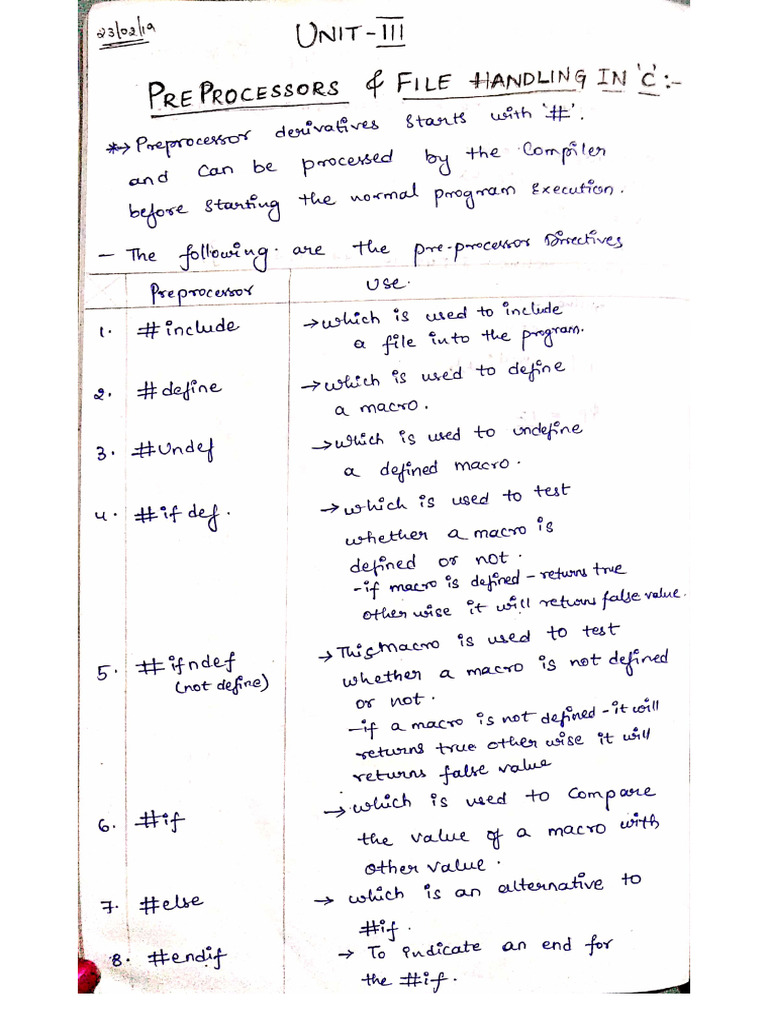 23/02/19
UNIT-III
PREPROCESSORS & FILE HANDLING IN 'C':-
*→ Preprocessor derivatives starts with '#'.
and can be processed by the compiler
before starting the normal program Execution.
- The following are the pre-processor Directives
Preprocessor Use.
1. #include →which is used to include
a file into the program.
2. #define →which is used to define
a macro.
3. #Undef →which is used to undefine
a defined macro.
4. #if def. →which is used to test
whether a macro is
defined or not.
-if macro is defined - returns true
other wise it will returns false value.
5. #ifndef →This Macro is used to test
(not define) whether a macro is not defined
or not.
-if a macro is not defined - it will
returns true other wise it will
returns false value
6. #if →which is used to compare
the value of a macro with
other value.
7. #else → which is an alternative to
#if.
8. #endif → To indicate an end for
the #if.